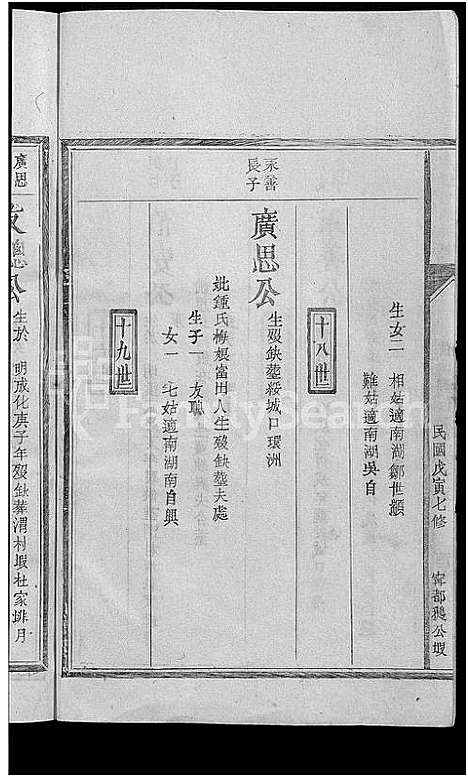 民國戊寅七修
寧都鵝公塅
生女二
相姑適南湖鄒世顯
難姑適南湖吳自
十八世
永譱
長子
廣思公
生歿缺塟綏城口環洲
妣鍾氏梅娘富田人生歿缺塟夫處
生子一 友聰
女一 七姑適南湖南自興
十九世
廣思
友聰公
生於 明成化庚子年歿缺葬渭村塅杜家排月
FamilySearch